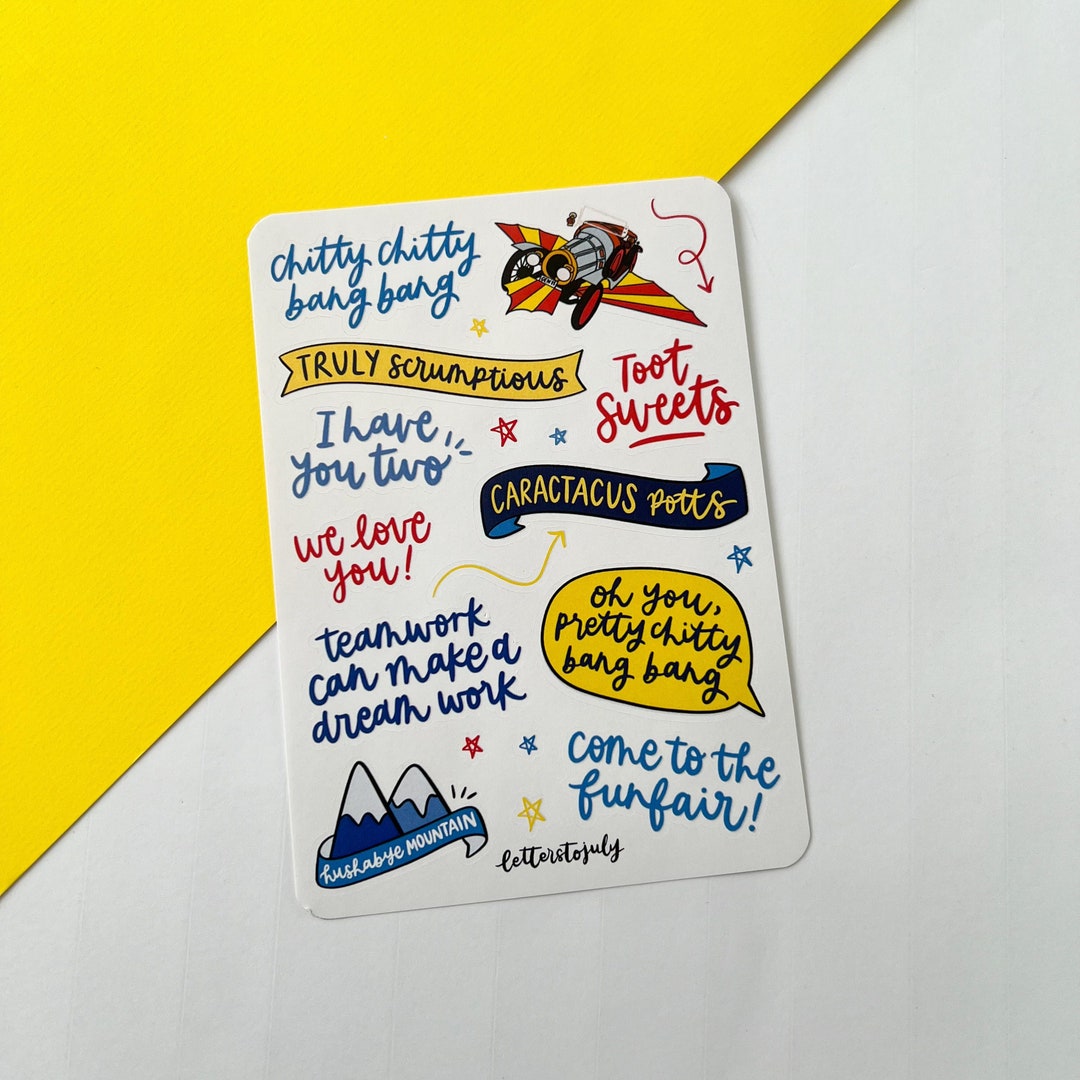 chitty chitty
bang bang
TRULY scrumptious
Toot
sweets
I have
you two
CARACTACUS potts
we love
you!
teamwork
can make a
dream work
oh you,
pretty chitty
bang bang
come to the
funfair!
hushabye MOUNTAIN
letterstojuly